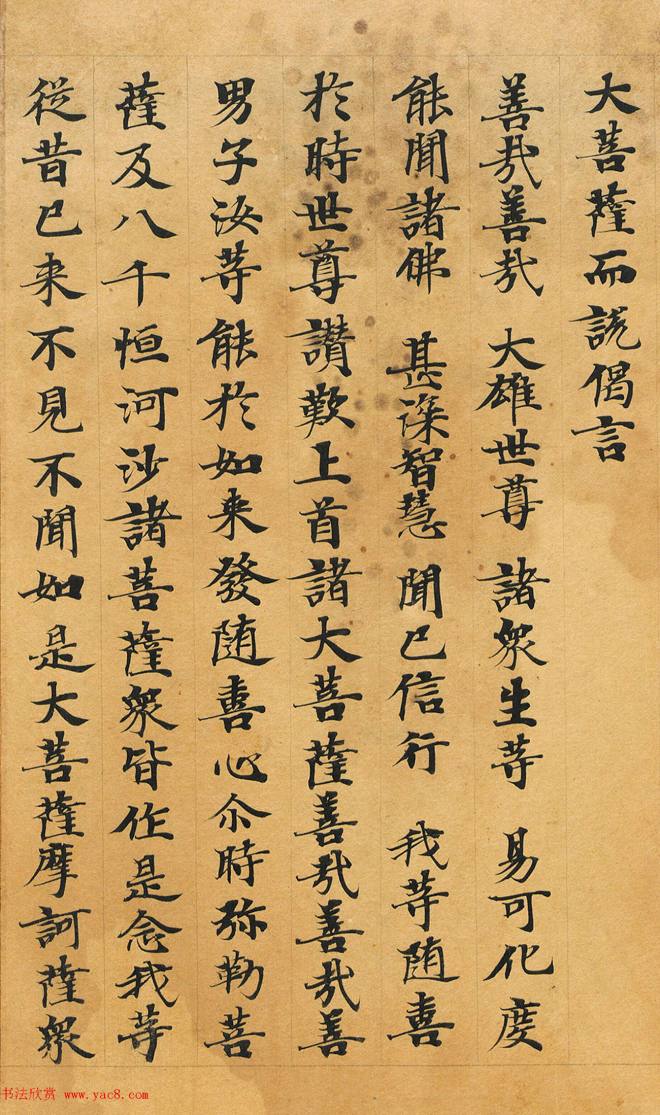 大菩薩而說偈言
善哉善哉 大雄世尊 諸衆生等 易可化度
能聞諸佛 甚深智慧 聞已信行 我等随喜
於時世尊讃歎上首諸大菩薩善哉善哉善
男子汝等能於如来發随喜心尒時弥勒菩
薩及八千恒河沙諸菩薩衆皆作是念我等
從昔已来不見不聞如是大菩薩摩訶薩衆
书法欣赏 www.yac8.com